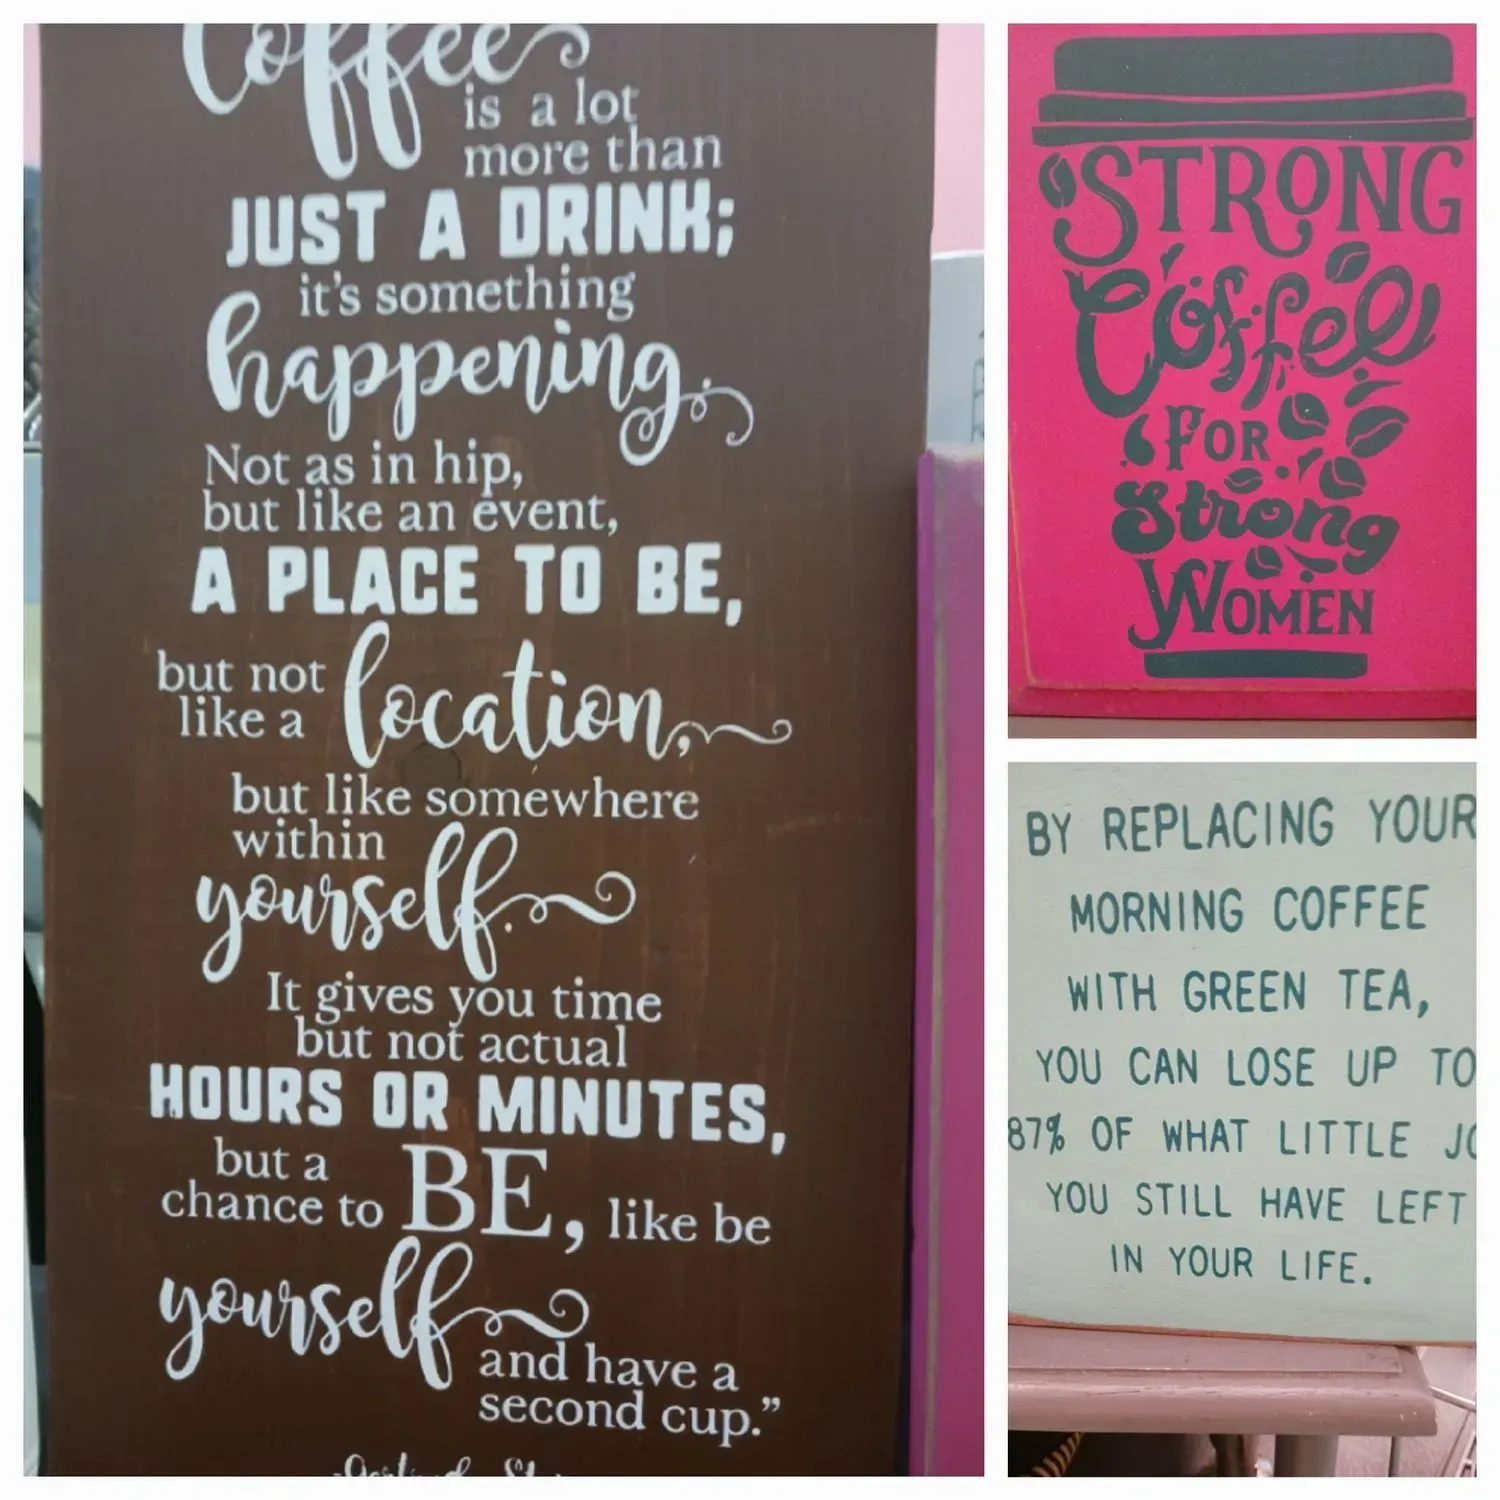 Coffee
is a lot
more than
JUST A DRINK;
it's something
happening.
Not as in hip,
but like an event,
A PLACE TO BE,
but not
like a
location,
but like somewhere
within
yourself.
It gives you time
but not actual
HOURS OR MINUTES,
but a
chance to BE, like be
yourself
and have a
second cup.”
STRONG
Coffee
FOR
Strong
WOMEN
BY REPLACING YOUR
MORNING COFFEE
WITH GREEN TEA,
YOU CAN LOSE UP TO
87% OF WHAT LITTLE
YOU STILL HAVE LEFT
IN YOUR LIFE.